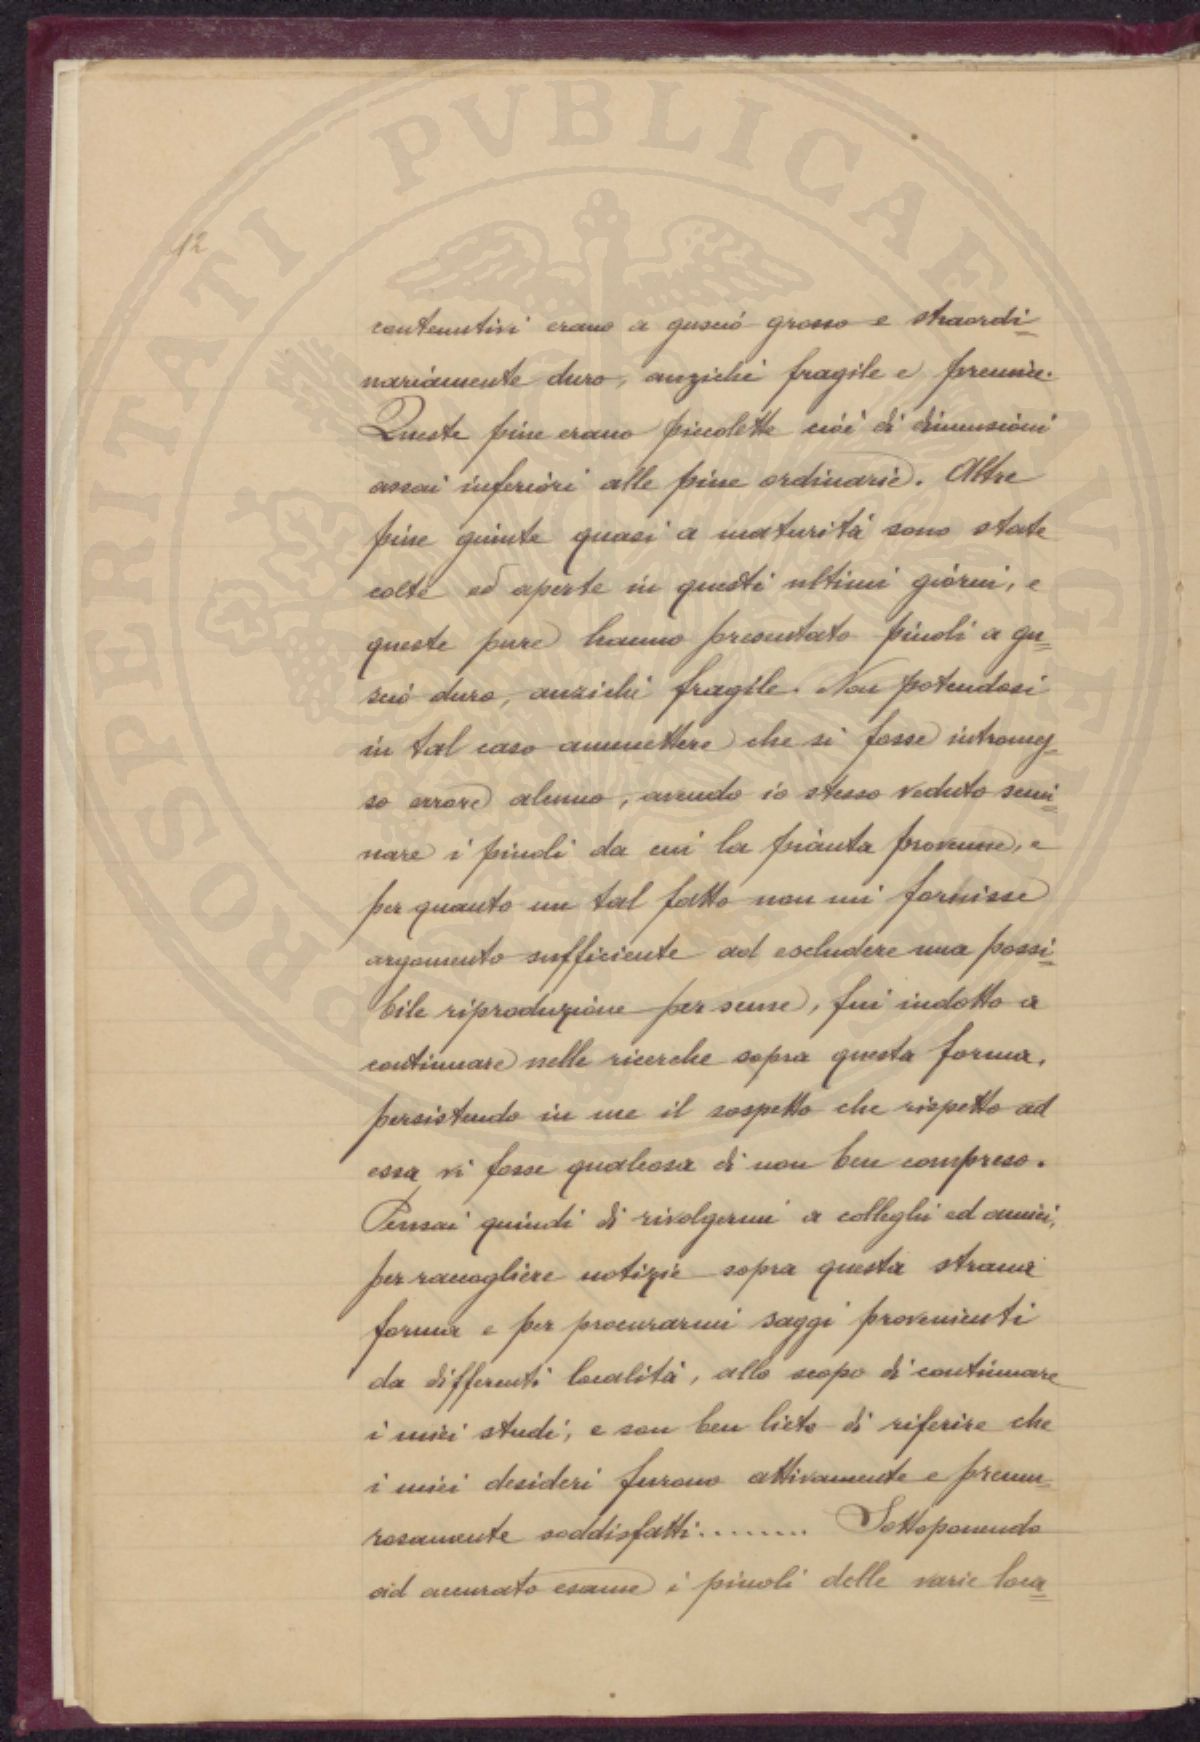 12
PROSPERITATI PVBLICAE AVGE
contenutivi erano a guscio grosso e straordi=
nariamente duro, anzichè fragile e premice.
Queste pine erano piccolette cioè di dimensioni
assai inferiori alle pine ordinarie. Altre
pine giunte quasi a maturità sono state
colte ed aperte in questi ultimi giorni, e
queste pure hanno presentato pinoli a gu=
scio duro, anzichè fragile. Non potendosi
in tal caso ammettere che si fosse intromes=
so errore alcuno, avendo io stesso veduto semi=
nare i pinoli da cui la pianta provenne, e
per quanto un tal fatto non mi fornisse
argomento sufficiente ad escludere una possi=
bile riproduzione per seme, fui indotto a
continuare nelle ricerche sopra questa forma,
persistendo in me il sospetto che rispetto ad
essa vi fosse qualcosa di non ben compreso.
Pensai quindi di rivolgermi a colleghi ed amici,
per raccogliere notizie sopra questa strana
forma e per procurarmi saggi provenienti
da differenti località, allo scopo di continuare
i miei studi, e son ben lieto di riferire che
i miei desideri furono attivamente e premu=
rosamente soddisfatti........ Sottoponendo
ad accurato esame i pinoli delle varie loca=